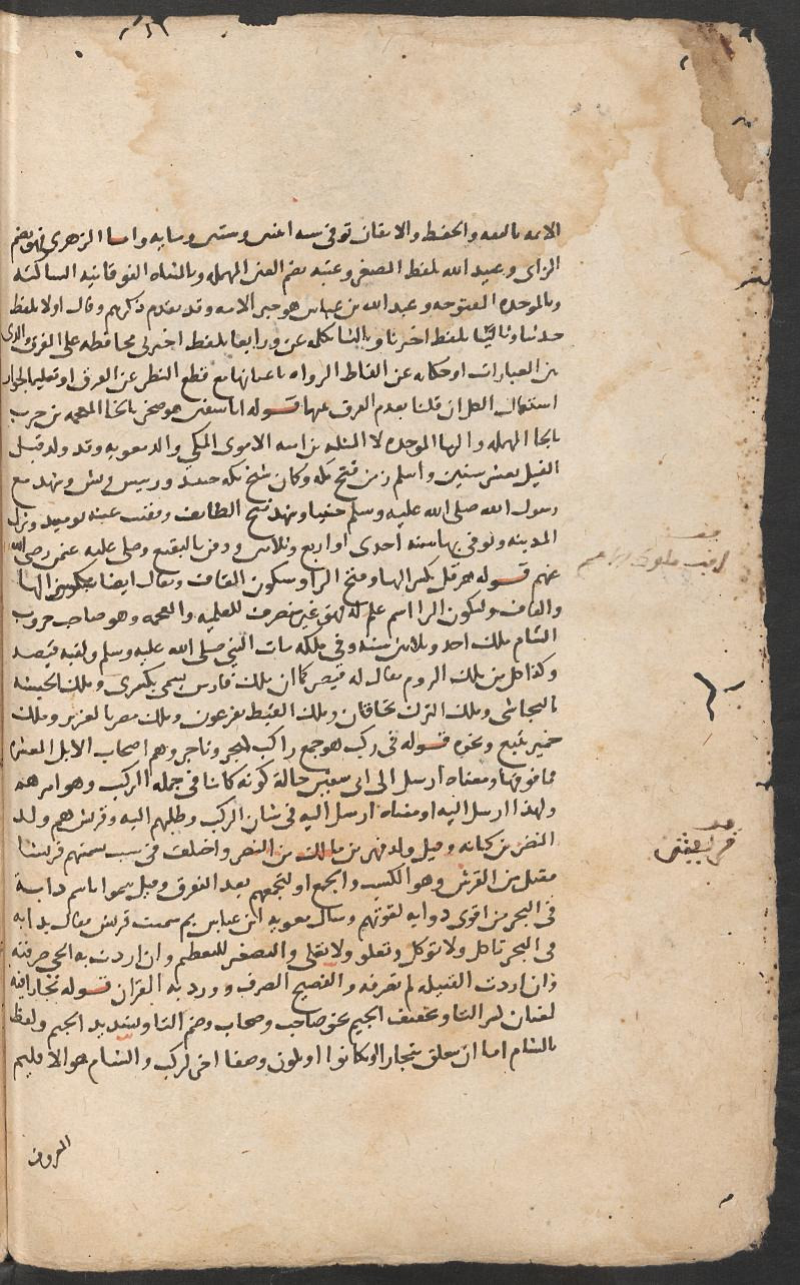 الائمة بالفقه والحفظ والاتقان توفى سنه اثنتين وستين ومايه واما الزهرى فهو بضم
الزاى وعبيد الله بلفظ المصغر وعتبه بضم العين المهمله وبالمثناه الفوقانيه الساكنه
وبالموحده المفتوحه وعبد الله بن عباس هو حبر الامه وقد تقدم ذكرهم وقال اولا بلفظ
حدثنا وثانيا بلفظ اخبرنا وثالثا بكلمه عن ورابعا بلفظ اخبرنى محافظه على الفرق الذى
بين العبارات او حكايه عن الفاظ الرواه باعيانها مع قطع النظر عن الفرق او تعليما لجواز
استعمال الكل ان قلنا بعدم الفرق بينها قوله ابا سفين هو صخر بالخا المعجمه بن حرب
بالحا المهمله والبا الموحده لا المثلثه بن اميه الاموى المكى والد معويه وقد ولد قبل
الفيل بعشر سنين واسلم زمن فتح مكه وكان شيخ مكه حينئذ ورييس قريش وشهد مع
رسول الله صلى الله عليه وسلم حنينا وشهد فتح الطايف وفقئت عينه يوميذ ونزل
المدينه وتوفى بها سنه احدى او اربع وثلاثين ودفن بالبقيع وصلى عليه عثمن رضى الله
عنهم قوله هرقل بكسر الها وفتح الرا وسكون القاف ويقال ايضا بكسر الها
والقاف وسكون الرا اسم علم له فهو غير منصرف للعلميه والعجمه وهو صاحب حروب
الشام ملك احد وثلاثين سنه وفى ملكه مات النبى صلى الله عليه وسلم ولقبه قيصر
وكذا كل من ملك الروم يقال له قيصر كما ان ملك فارس يسمى بكسرى وملك الحبشه
بالنجاشى وملك الترك بخاقان وملك القبط بفرعون وملك مصر بالعزيز وملك
حمير بتبع ونحوه قوله فى ركب هو جمع راكب كتجر وتاجر وهم اصحاب الابل العشرة
فما فوقها ومعناه ارسل الى ابى سفين حالة كونه كائنا فى جمله الركب وهو اميرهم
ولهذا ارسل اليه او معناه ارسل اليه فى شان الركب وطلبهم اليه وقريش هم ولد
النضر بن كنانه وقيل ولد فهر بن مالك بن النضر واختلف فى سبب تسميتهم قريشا
فقيل من القرش وهو الكسب والجمع او لتجمعهم بعد التفرق وقيل سموا باسم دابة
فى البحر من اقوى دوابه لقوتهم وسال معويه ابن عباس بم سميت قريش فقال بدابه
فى البحر تاكل ولا توكل وتعلو ولا تعلى والتصغير للتعظيم وان اردت به الحى صرفته
وان اردت القبيله لم تصرفه والفصيح الصرف وورد به القران قوله تجارا فيه
لغتان كسر التا وتخفيف الجيم نحو صاحب وصحاب وضم التا وتشديد الجيم ولفظ
بالشام اما ان يتعلق بتجارا او بكانوا او يكون وصفا اخر لركب والشام هو الاقليم
المعروف
قف
قف
قريش